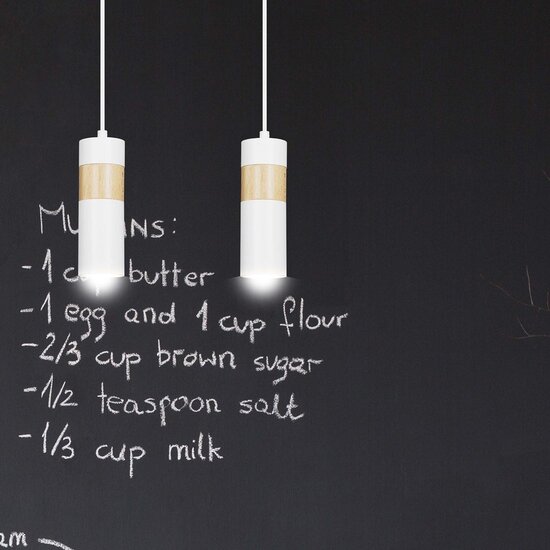 - 1 butter
- 1 egg and 1 cup flour
- 2/3 cup brown sugar
- 1/2 teaspoon salt
- 1/3 cup milk